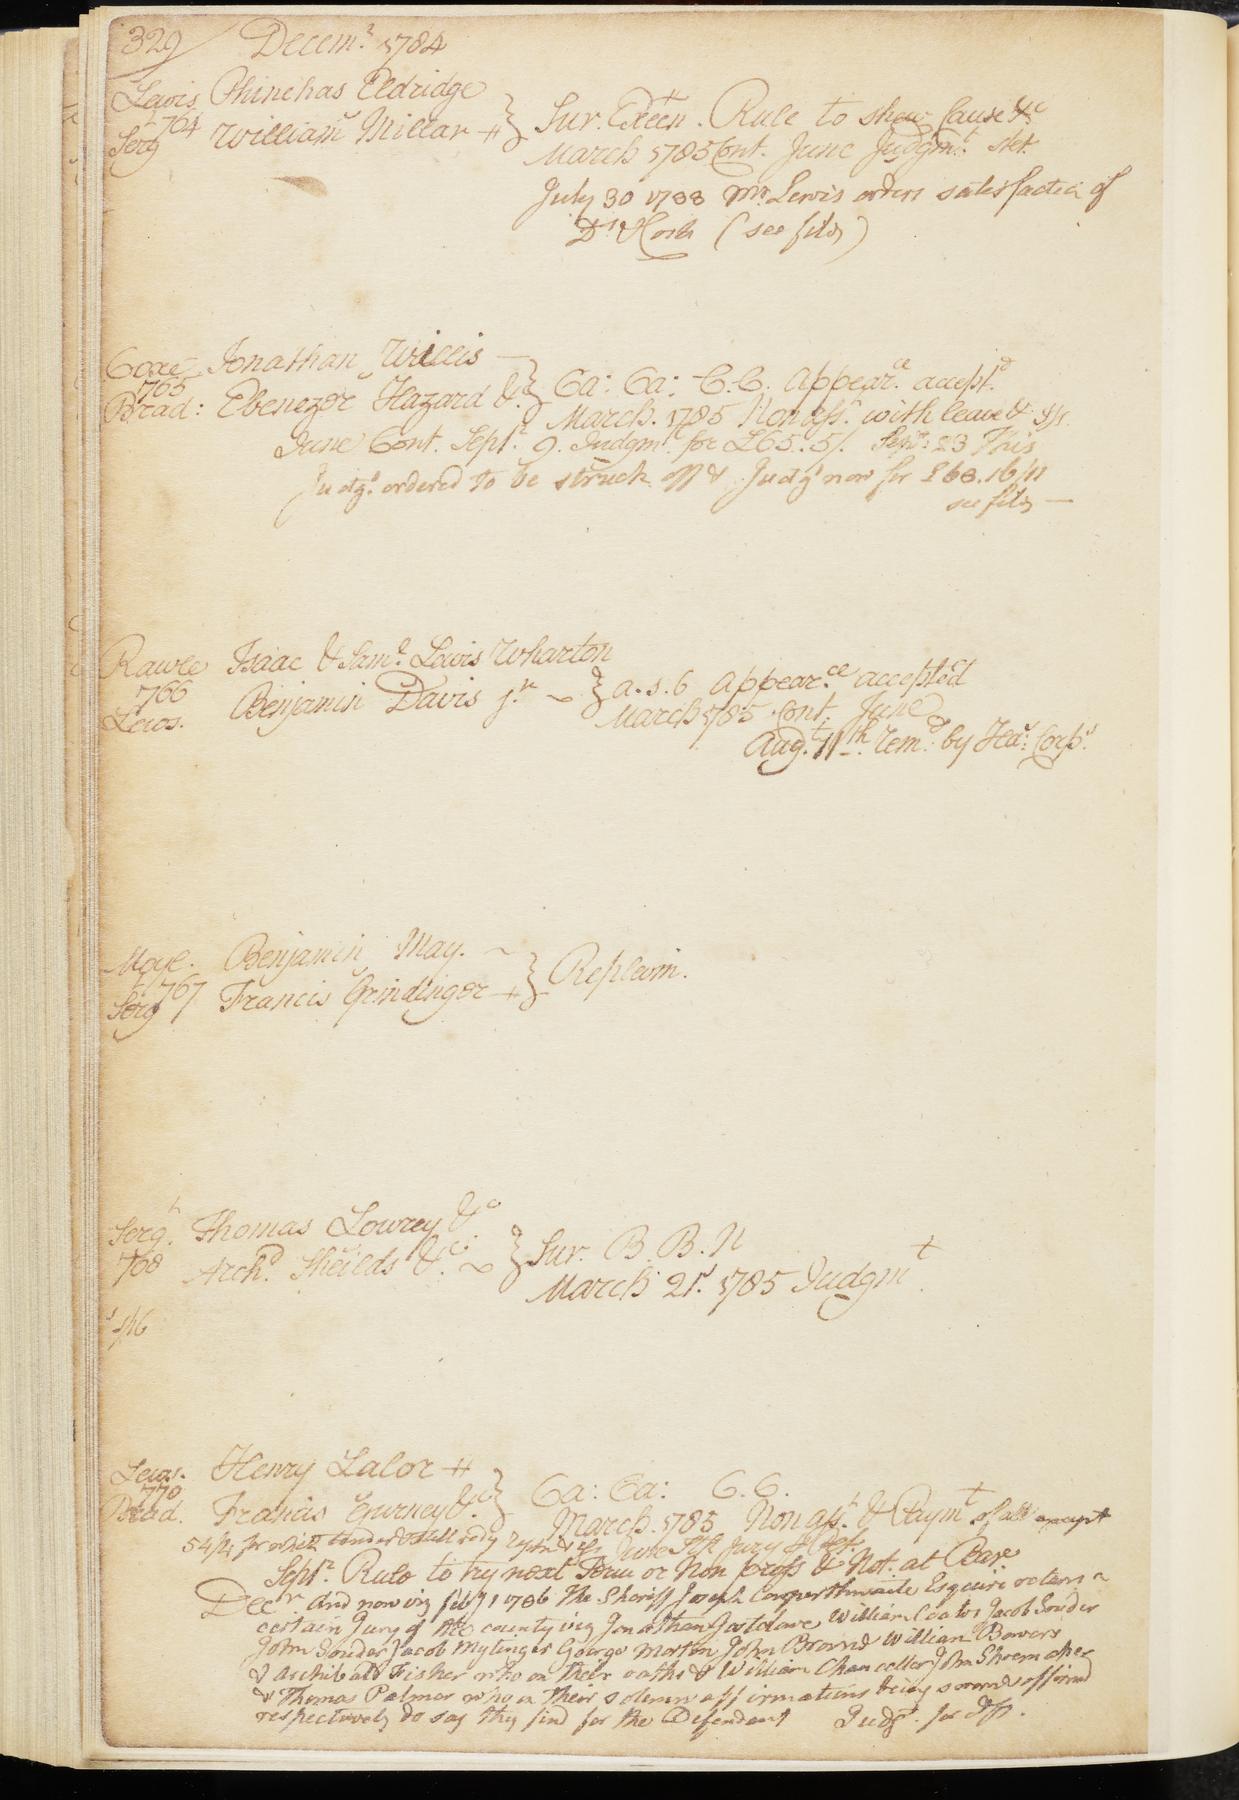 329 Decem.r 1784
Lewis Phinehas Eldridge
764
Serg.t William Millar
Sur. Rule to shew Cause &c
March 1785 Cont. June Judgm.t
July 30 1788 Mr. Lewis orders satisfaction of
(see file)
Coxe Jonathan Willis
765
Brad: Ebenezer Hazard &c.
Ca: Ca: C.C. Appear.ce accept.d
March. 1785 Non ass.t with leave &
June Cont. Sept.r 9. Judgm.t for £65.5/. Sept.r 23 This
Judg.t ordered to be struck off & Judg.t now for £68.16/11
see file —
Rawle Isaac & Sam.l Lewis Wharton
766
Lewis. Benjamin Davis j.r
a.s.6 Appear.ce accepted
March 1785 Cont. June
Aug.t 11th rem.d by Ha: Corp.s
Moyl. Benjamin May.
767
Serg.t Francis Grindinger
Replevin.
Serg.t Thomas Lowrey &c
768
Arch.d Sheilds &c:
Sur. B. B. N
March 21st. 1785 Judgm.t
Lewis. Henry Lalor
770
Brad. Francis Gurney &c.
Ca: Ca: C.C.
March. 1785 Non ass.t & Paym.t of all except
54/4 for which tender & still redy June Jury
Sept.r Rule to try next Term or Non pross & Not. at Bar.
Dec.r And now viz Feb.y 1 1786 the Sheriff Joseph Cowperthwaite Esquire return a
certain Jury of the county viz Jonathan Gostelowe William Coates Jacob Souder
John Souder Jacob Mytinger George Morton John Brown William Bowers
& Archibald Fisher who on their oaths & William Chancellor John Shoemaker
& Thomas Palmer who on their solemn affirmations being sworn & affirmd
respectively do say they find for the Defendant Judg.t for Dft.